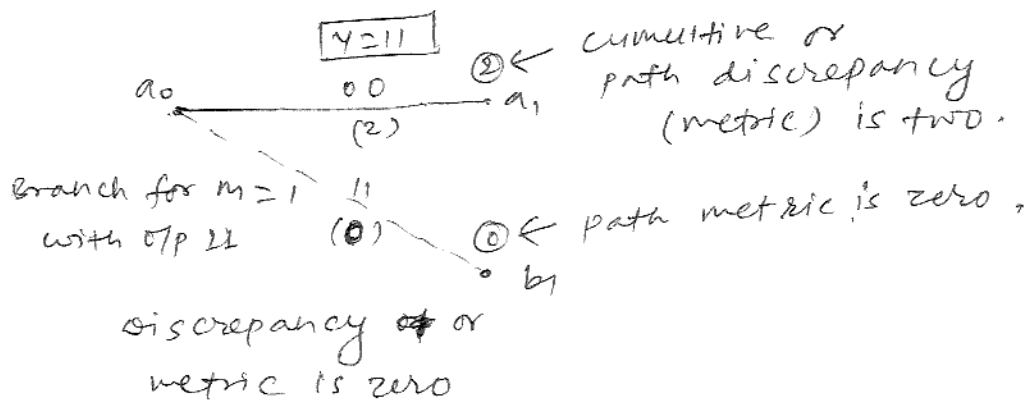 Y=11
a0 00 (2) a1
(2)
② ← cumulative or
path discrepancy
(metric) is two.
Branch for m=1
with o/p 11
11
(0)
⓪ ← path metric is zero,
b1
Discrepancy or
metric is zero